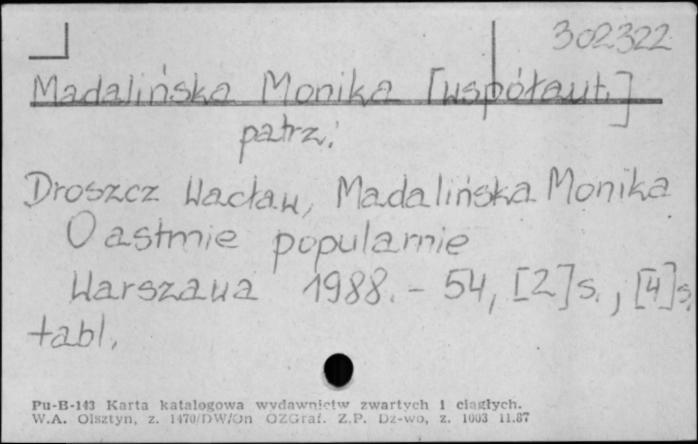 302322
Madalińska Monika [współaut.]
patrz:
Droszcz Wacław, Madalińska Monika
O astmie popularnie
Warszawa 1988. - 54, [2]s., [4]s.
tabl.
Pu-B-143 Karta katalogowa wydawnictw zwartych i ciągłych.
W.A. Olsztyn, z. 1470/DW/On OZGraf. Z.P. Dz-wo, z. 1003 11.87